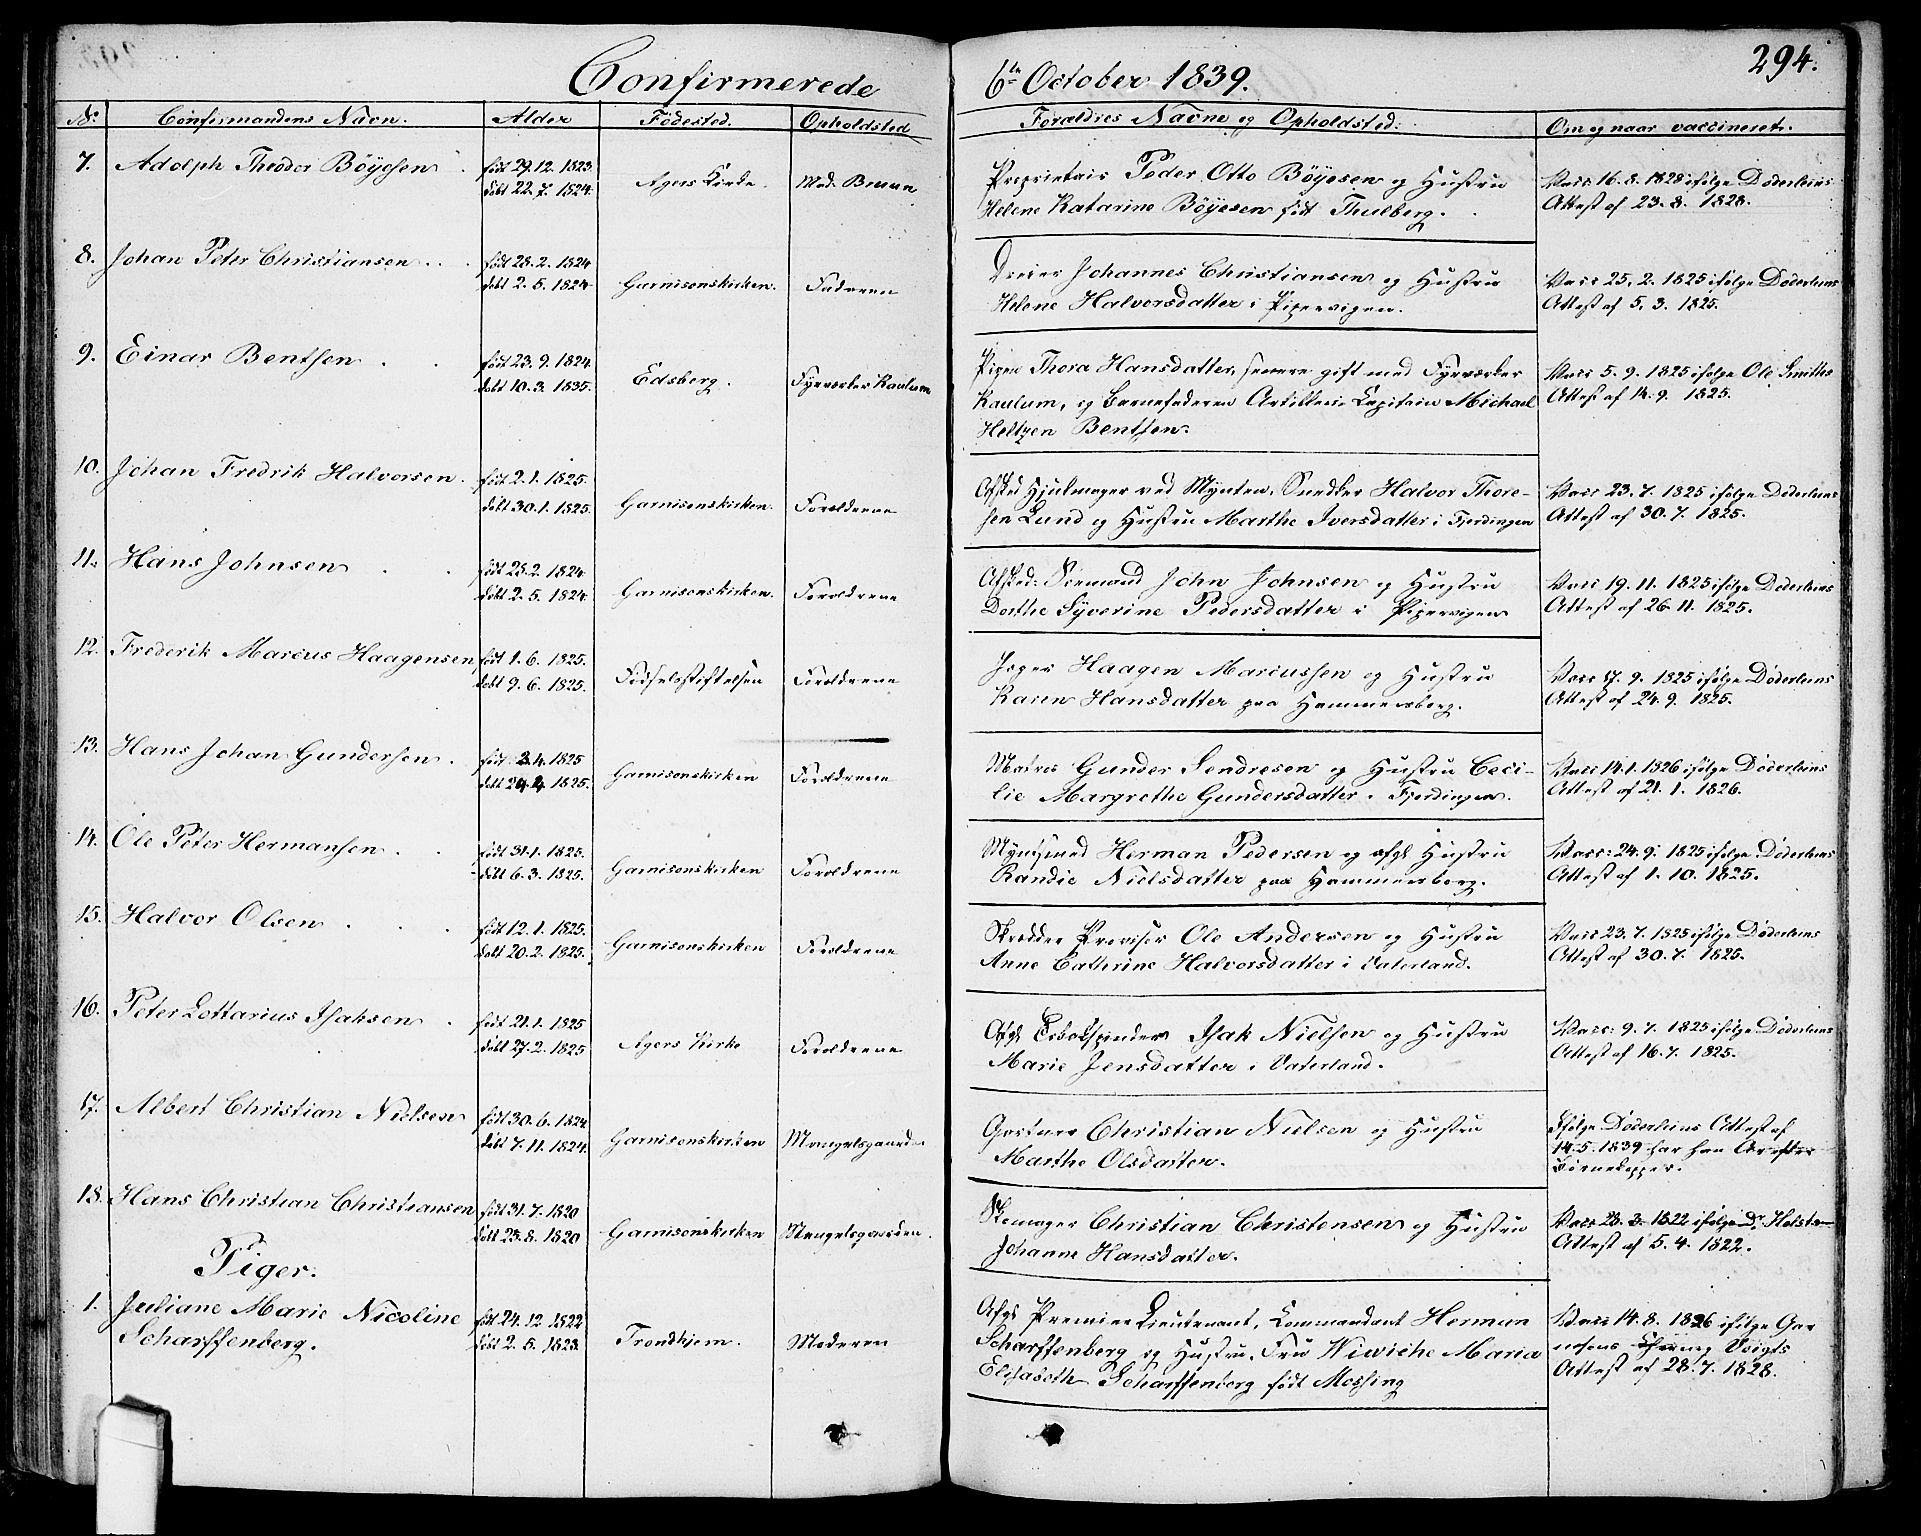 Confirmerede 6te October 1839. 294.
No. Confirmandens Navn. Alder Fødested. Opholdsted Forældres Navne og Opholdsted: Om og naar vaccineret.
7. Adolph Theodor Böyesen født 29.12.1823. Agers Kirke. Mad. Bruun Proprietair Peder Otto Böyesen og Hustru Vacc 16.8.1828 ifølge Døderleins
døbt 22.7.1824. Helene Katarine Böyesen født Thulberg. Attest af 23.8.1828.
8. Johan Peter Christiansen født 28.2.1824 Garnisonskirken. Faderen Dreier Johannes Christiansen og Hustru Vacc 25.2.1825 ifølge Døderleins
døbt 2.5.1824 Helene Halvorsdatter i Pipervigen. Attest af 5.3.1825.
9. Einar Bentsen født 23.9.1824. Edsberg. Fyrværker Kaulum Pigen Thora Hansdatter, senere gift med Fyrværker Vacc 5.9.1825 ifølge Ole Smiths
døbt 10.3.1835. Kaulum, og Barnefaderen Artillerie Capitain Michael Attest af 14.9.1825.
Heltzen Bentsen.
10. Johan Fredrik Halvorsen. født 2.1.1825. Garnisonskirken. Forældrene Afsked Hjulmager ved Mynten, Snedker Halvor Thore- Vacc 23.7.1825 ifølge Døderleins
døbt 30.1.1825. sen Lund og Hustru Marthe Iversdatter i Fjerdingen Attest af 30.7.1825.
11. Hans Johnsen født 28.2.1824 Garnisonskirken. Forældrene Afsked: Sømand John Johnsen og Hustru Vacc 19.11.1825 ifølge Døderleins
døbt 2.5.1824 Dorthe Syverine Pedersdatter i Pipervigen Attest af 26.11.1825.
12. Frederik Marcus Haagensen født 1.6.1825. Fødselsstiftelsen Forældrene Haagen Marcussen og Hustru Vacc 17.9.1825 ifølge Døderleins
døbt 9.6.1825. Karen Hansdatter paa Hammersborg. Attest af 24.9.1825.
13. Hans Johan Gundersen. født 3.4.1825 Garnisonskirken Forældrene Matros Gunder Sendresen og Hustru Ceci- Vacc 14.1.1826 ifølge Døderleins
døbt 24.4.1825. lie Margrethe Gundersdatter i Fjerdingen. Attest af 21.1.1826.
14. Ole Peter Hermansen født 31.1.1825. Garnisonskirken Forældrene Myntsmed Herman Pedersen og afgl Hustru Vacc: 24.9.1825 ifølge Døderleins
døbt 6.3.1825. Randie Nielsdatter paa Hammersborg. Attest af 1.10.1825.
15. Halvor Olsen født 12.1.1825. Garnisonskirken Forældrene Skrædder Provisor Ole Andersen og Hustru Vacc 23.7.1825 ifølge Døderleins
døbt 20.2.1825. Anne Cathrine Halvorsdatter i Vaterland. Attest af 30.7.1825.
16. Peter Lottarius Isaksen født 21.1.1825 Agers Kirke Forældrene Afgl Isak Nielsen og Hustru Vacc: 9.7.1825 ifølge Døderleins
døbt 27.2.1825 Marie Jensdatter i Vaterland. Attest af 16.7.1825.
17. Albert Christian Nielsen født 30.6.1824 Garnisonskirken Mangelsgaarden Gartner Christian Nielsen og Hustru Ifølge Døderleins Attest af
døbt 7.11.1824. Marthe Olsdatter. 14.5.1839 har han Ar efter
Børnekopper.
18. Hans Christian Christiansen født 31.7.1820 Garnisonskirken Mangelsgaarden. Skomager Christian Christensen og Hustru Vacc 28.3.1822 ifølge Dr. Holsts
døbt 23.8.1820 Johanne Hansdatter. Attest af 5.4.1822.
Piger.
1. Juliane Marie Nicoline født 24.12.1822 Trondhjem. Moderen Afgl Premier Lieutenant, Commandant Herman Vacc 14.8.1826 ifølge Gar
Scharffenberg. døbt 2.5.1823. Scharffenberg og Hustru, Fru Wiwiche Maria nisons Chirurg Voigts
Elisabeth Scharffenberg født Mossing Attest af 28.7.1828.